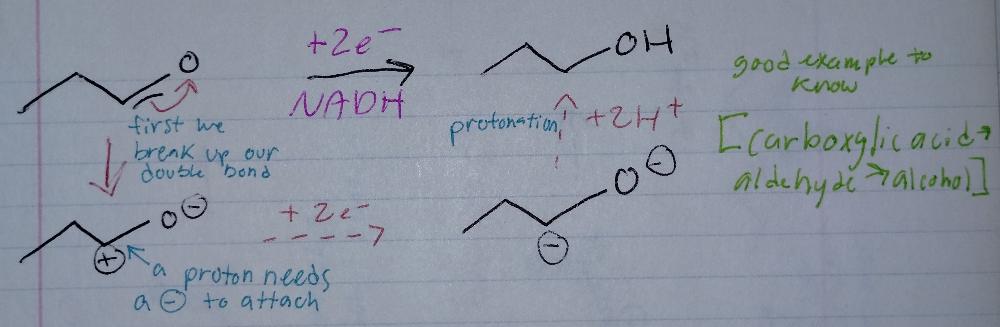 O
+2e⁻
NADH
OH
good example to
know
first we
break up our
double bond
protonation
+2H⁺
[(carboxglic acid→
aldehyde→alcohol]
O⊖
⊕
+2e⁻
O⊖
⊖
a proton needs
a ⊖ to attach